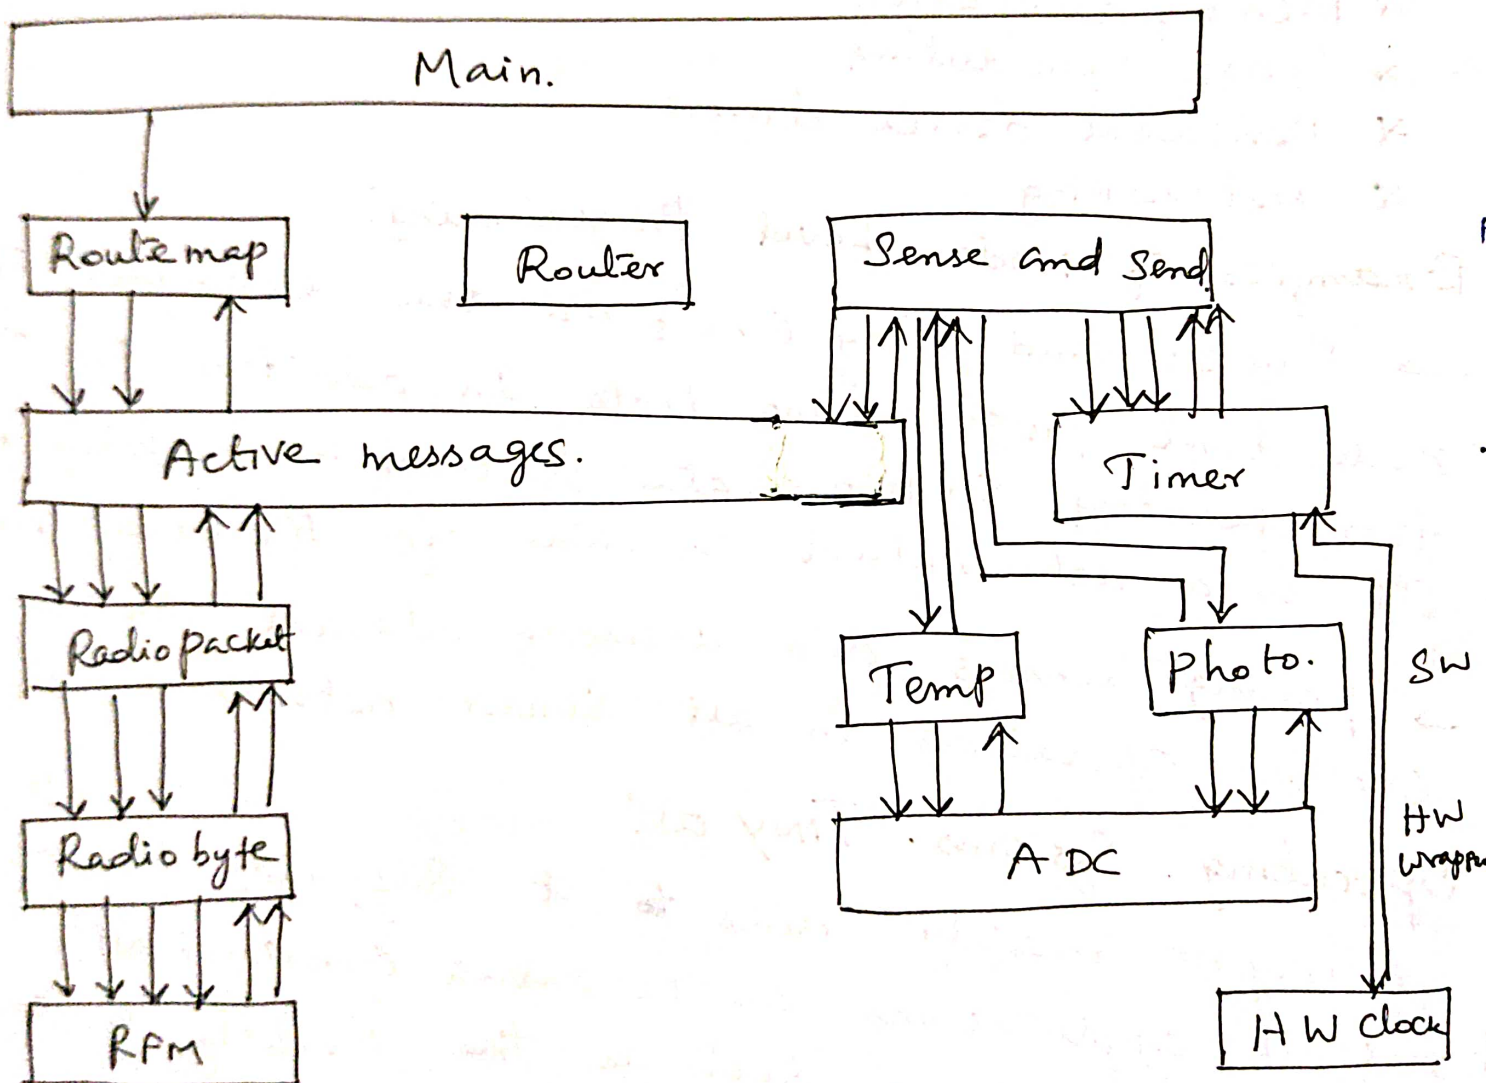 Main.
Route map
Router
Sense and Send.
Active messages.
Timer
Radio packet
Temp
Photo.
SW
Radio byte
ADC
HW
RFM
HW Clock